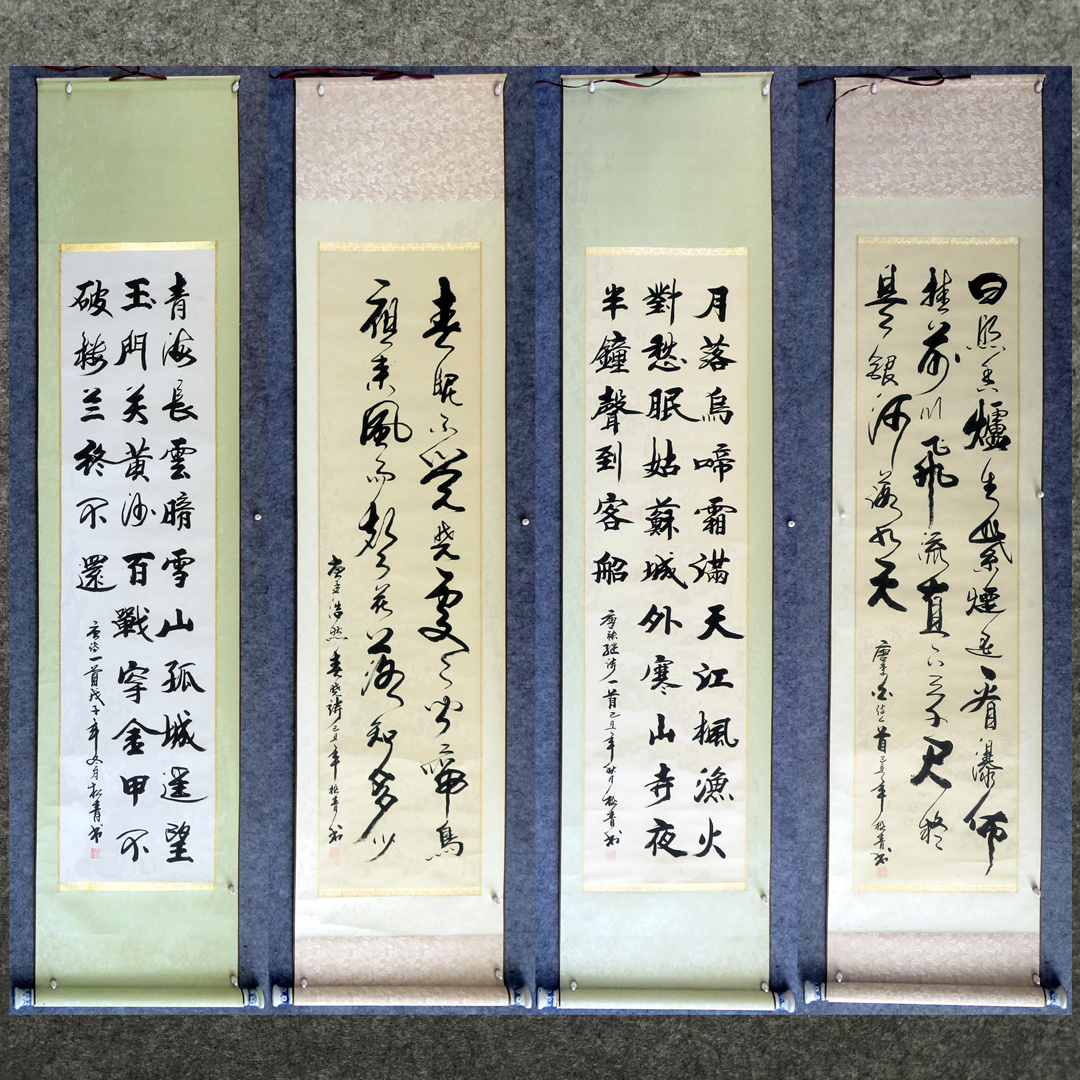 青海長雲暗雪山孤城遥望
玉門关黄沙百戰穿金甲不
破楼兰終不還
唐诗一首戊子年月松青书
春眠不觉晓處々闻啼鳥
夜来風雨声花落知多少
唐孟浩然春晓诗己丑年松青书
月落烏啼霜滿天江楓漁火
對愁眠姑蘇城外寒山寺夜
半鐘聲到客船
唐張继诗一首己丑年秋月松青书
日照香爐生紫煙遥看瀑布
挂前川飛流直下三千尺疑
是银河落九天
唐李白诗一首己丑年松青书